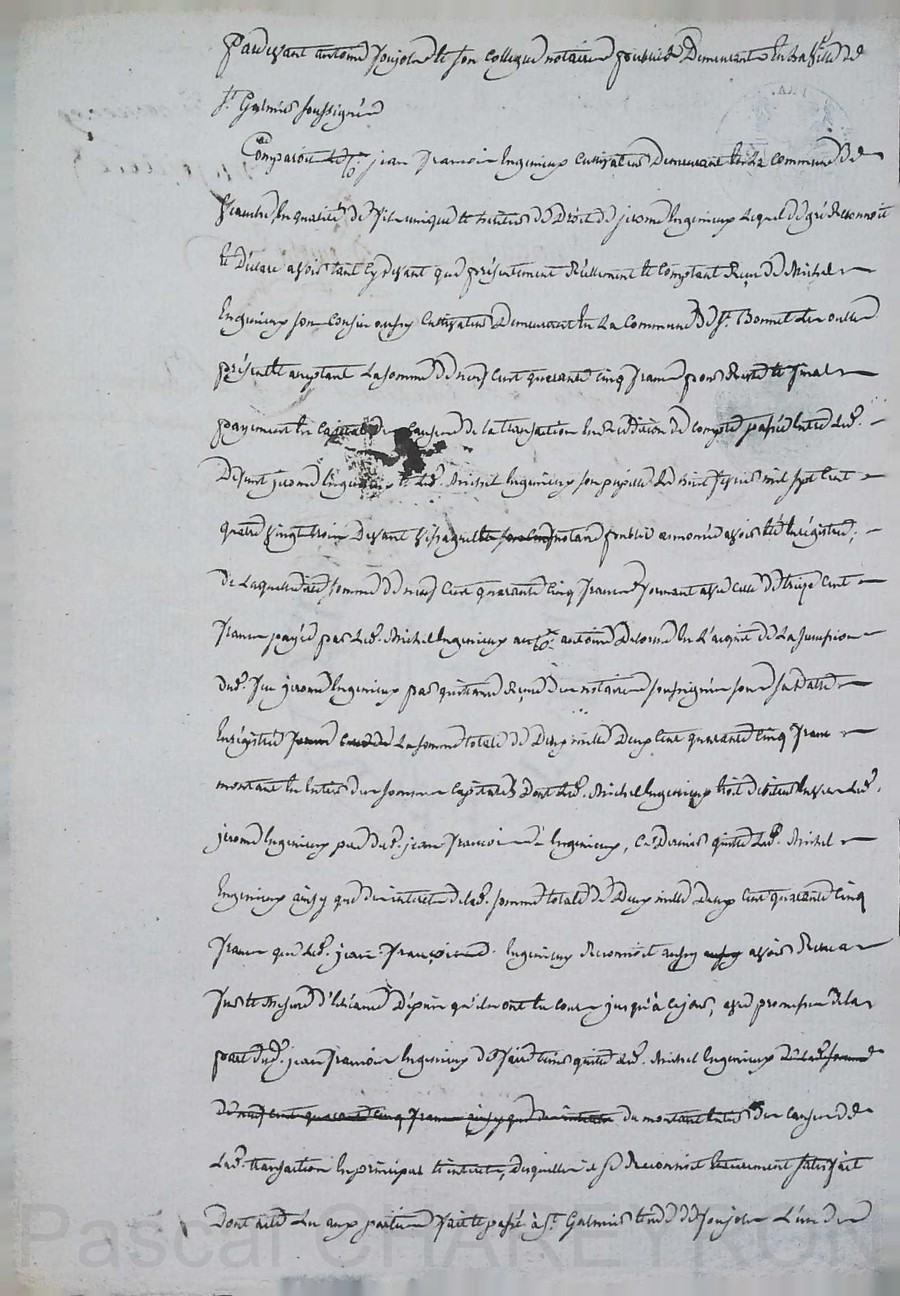 Pardevant antoine Foujols et son collegue notaires publics Demeurants En la ville de
St. Galmier soussignés
Comparoit le Cen. jean François Ingenieux Cultivateur Demeurant En la Commune de
Veauche, En qualité de fils unique et heritier de Droit de jerome Ingenieux Lequel de gré Reconnoit
et Déclare avoir tant Cy devant que présentement Réellement et Comptant Reçu de Michel
Ingenieux son Cousin aussy Cultivateur Demeurant En La Commune de St. Bonnet Les oulles
présent et acceptant La somme de neuf Cent quarante Cinq francs pour Reste et final
payement En Capital des Causes de la transaction En Reddition de compte passé Entre Led.
Défunt jerome Ingenieux et Led. Michel Ingenieux son pupille Le mil sept Cent
quatre vingt trois Devant notaire public Enoncée avoir été Enregistrée;
De Laquelle dite somme de neuf Cent quarante Cinq francs formant avec celle de treize Cent
francs payée par Led. Michel Ingenieux au Cen. antoine Delorme En L'acquit de La succession
dud. feu jerome Ingenieux par quittance Reçue des notaires soussignés sous sa Datte
Enregistrée La somme totale de Deux mille Deux Cent quarante Cinq francs
montant En Entier des sommes Capitales Dont Led. Michel Ingenieux étoit débiteur Envers Led.
jerome Ingenieux pere dud. jean François Ingenieux, Ce Dernier quitte Led. Michel
Ingenieux ainsy que des interets de lad. somme totale de Deux mille Deux Cent quarante Cinq
francs que Led. jean François Ingenieux Reconnoit aussy aussy avoir Reçus
fur et mesure d'Echéance Depuis qu'ils ont Eu Cours jusqu'à Ce jour, avec promesse de la
part dud. jean François Ingenieux de faire tenir quitte Led. Michel Ingenieux De lad. somme
de neuf cent quarante Cinq francs ainsy que des interets du montant Entier des Causes de
Lad. transaction En principal et interets, desquelles il se Reconnoit Entierement satisfait
Dont acte Lu aux parties fait et passé à St. Galmier Etude de Foujols L'un des
Pascal CHAREYRON